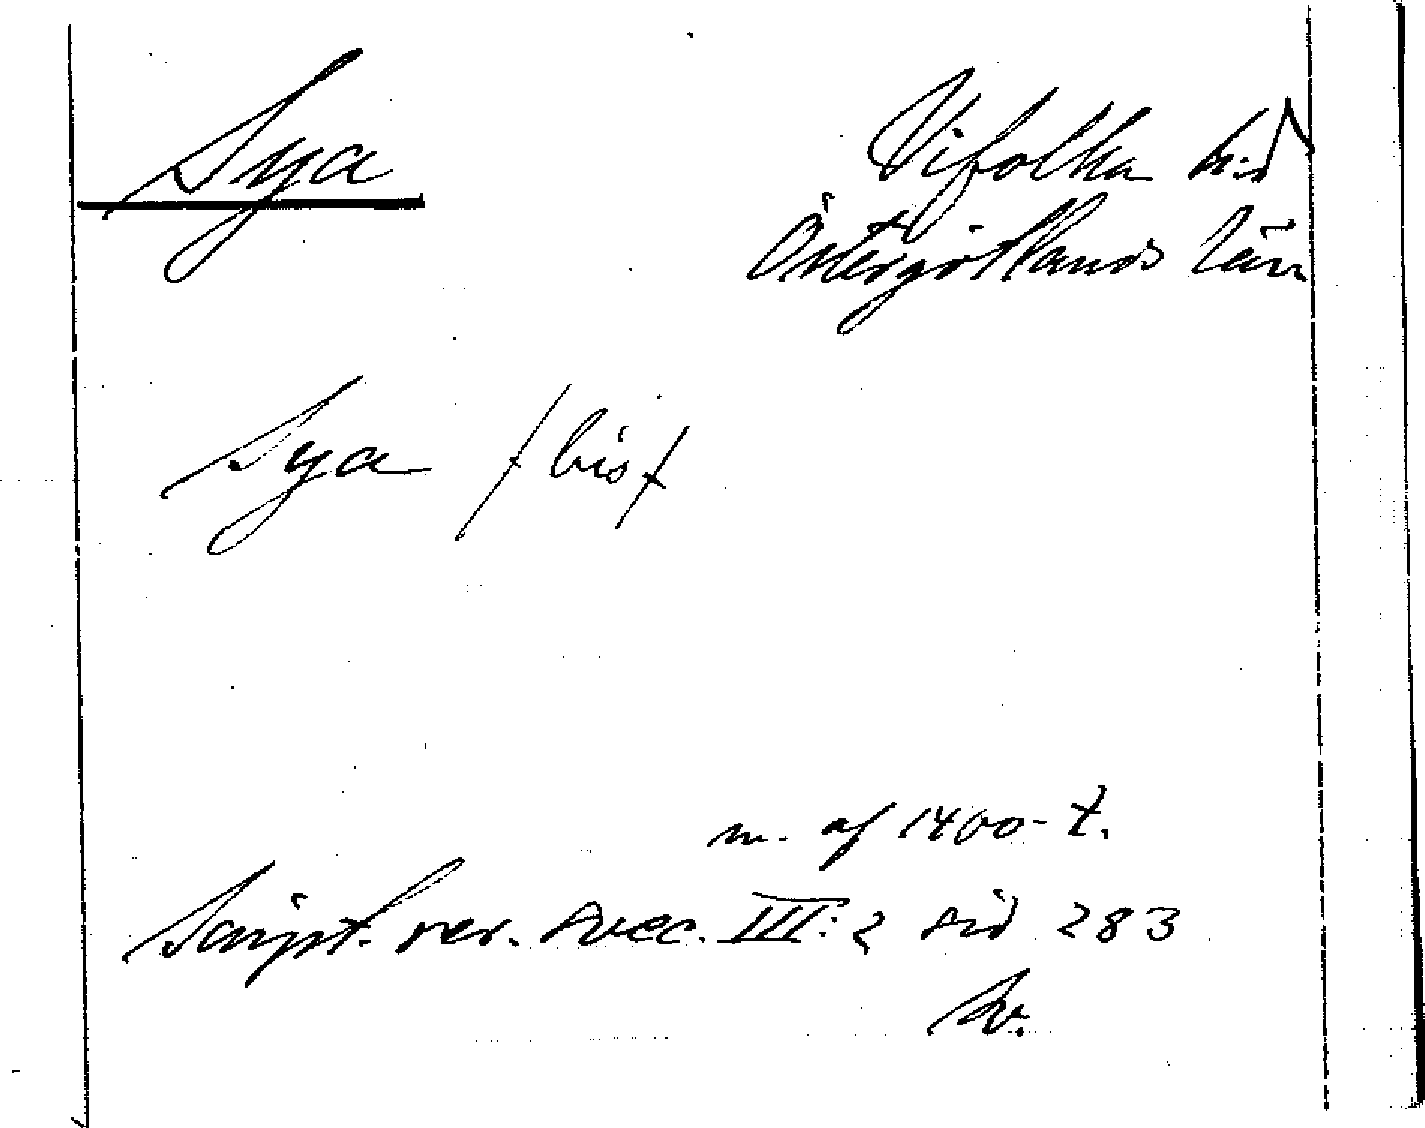 Sya
Vifolka h:d
Östergötlands län
Sya /bis/
m. af 1400-t.
Script. rer. svec. III: 2 sid 283